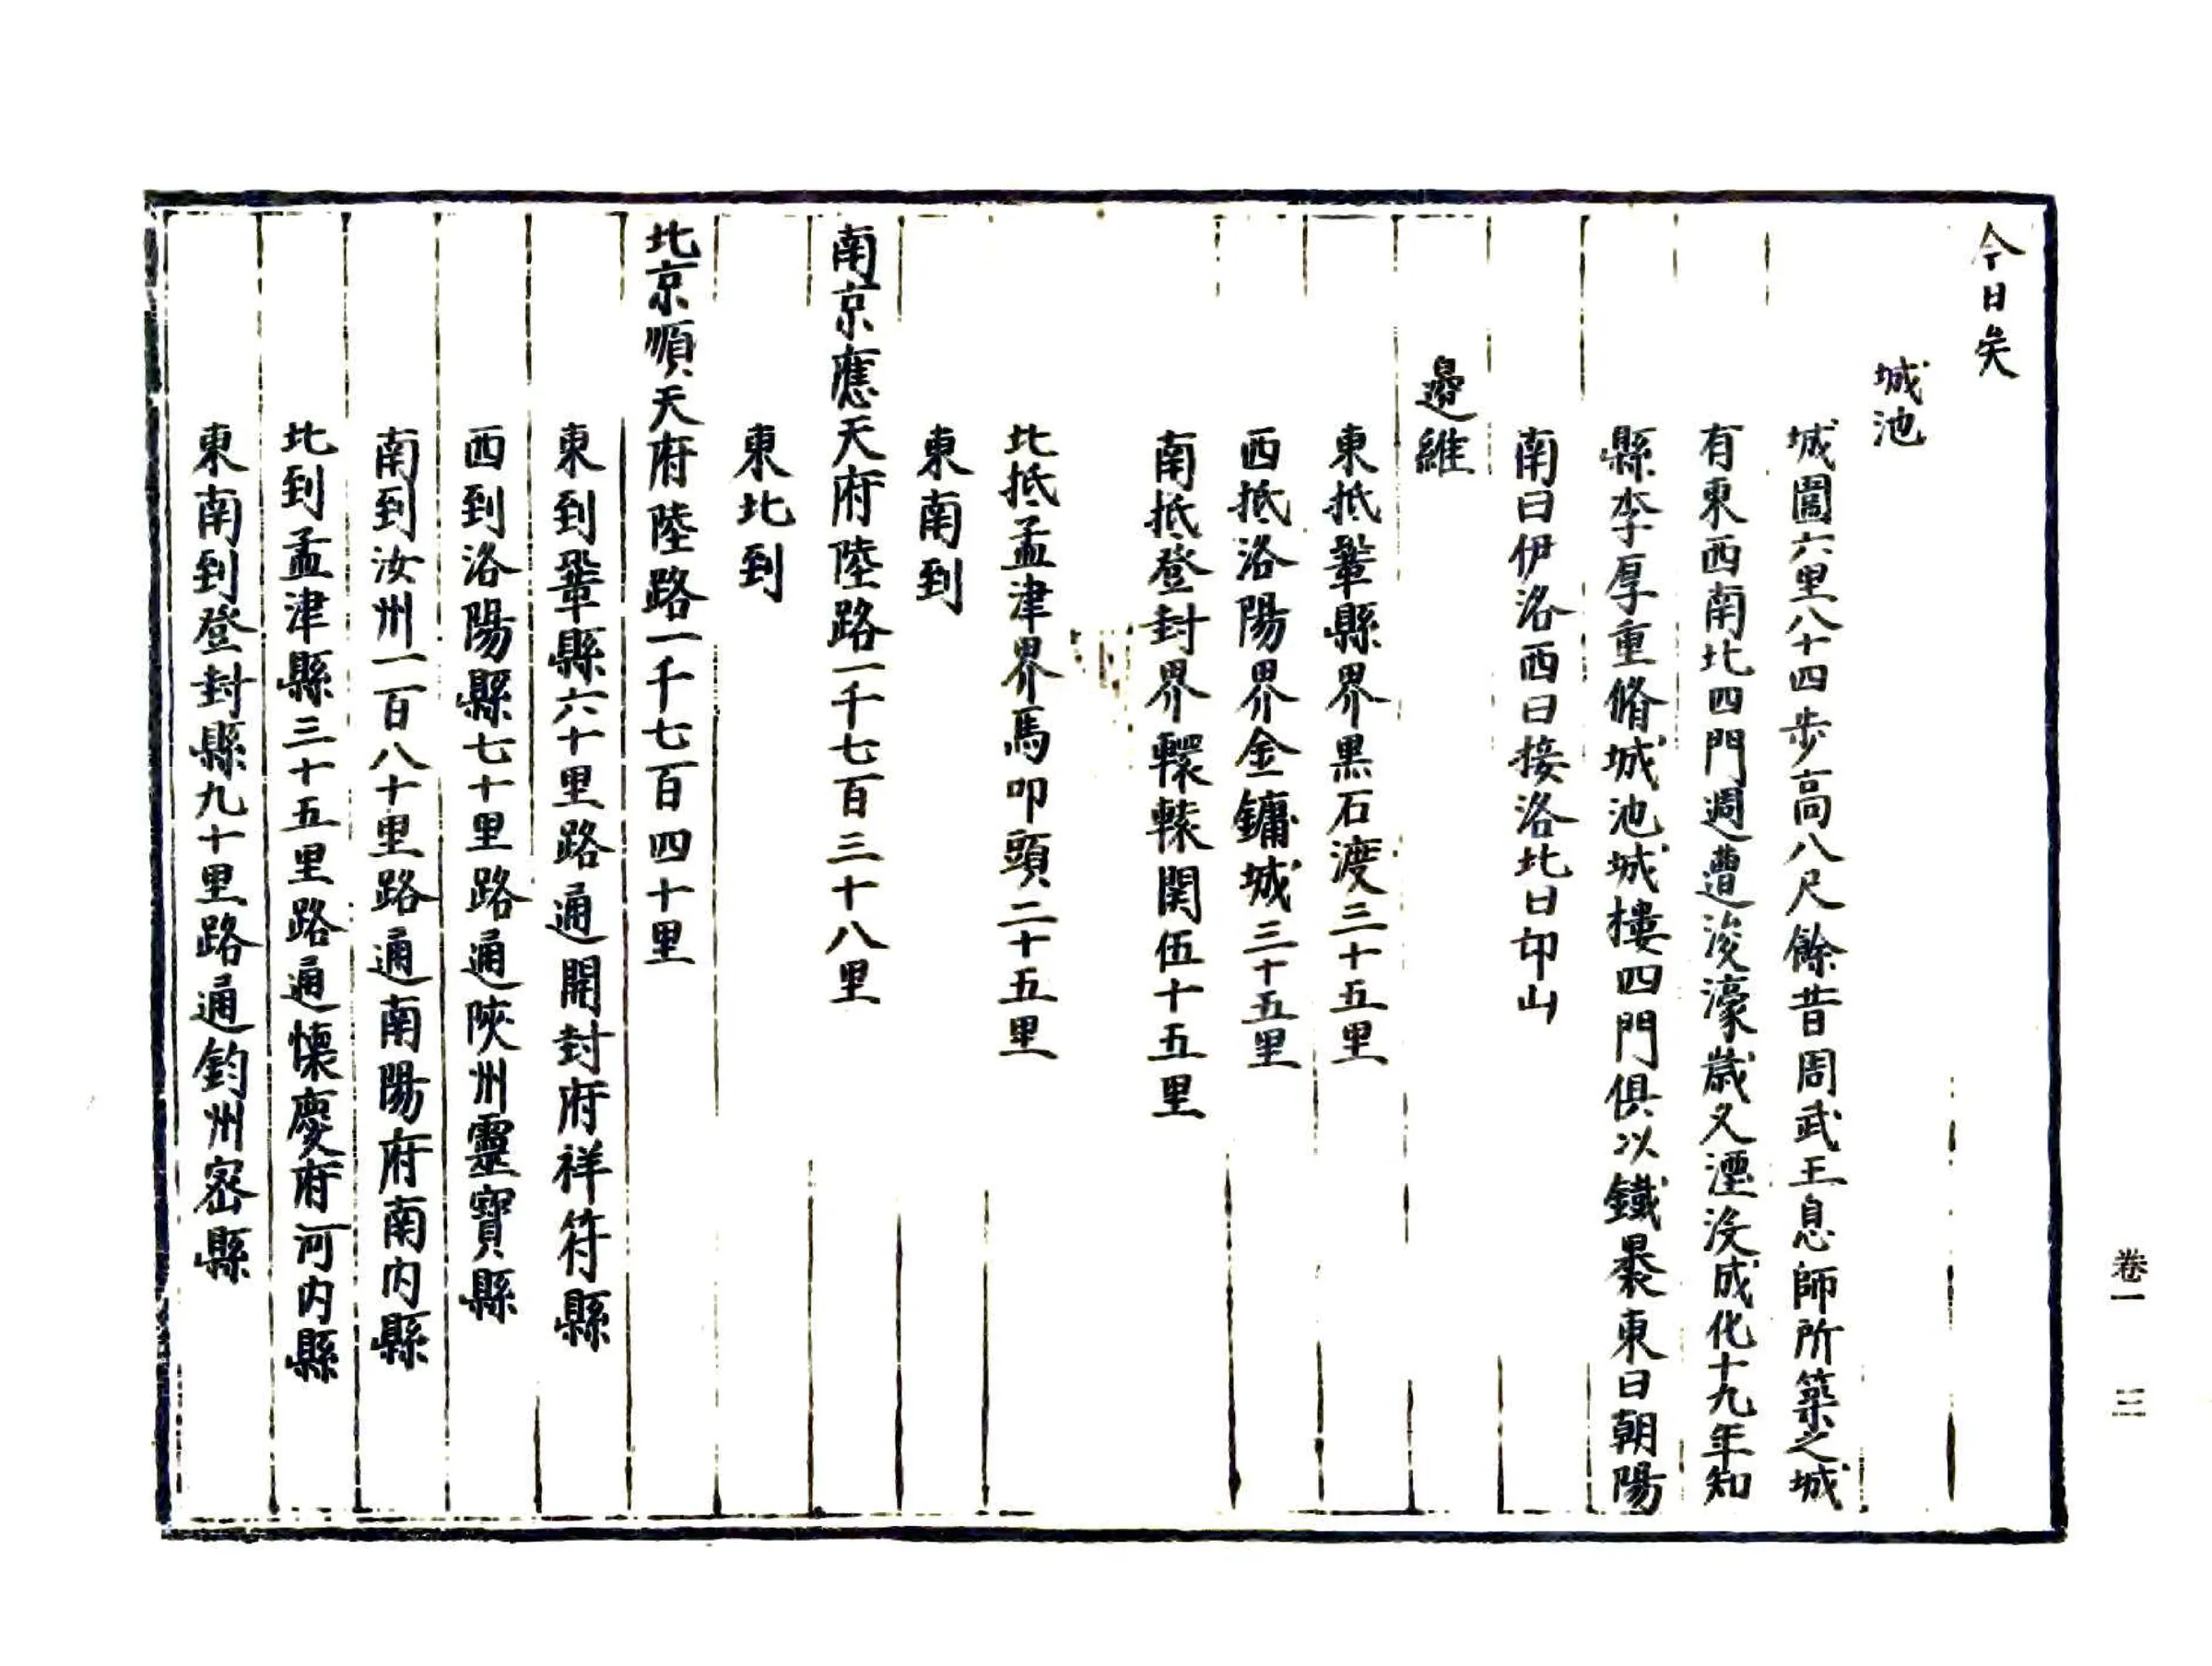 今日矣
城池
城圍六里八十四步高八尺餘昔周武王息師所築之城
有東西南北四門週遭浚濠歲久湮沒成化十九年知
縣李厚重脩城池城樓四門俱以鐵裹東曰朝陽
南曰伊洛西曰接洛北曰邙山
邊維
東抵鞏縣界黑石渡三十五里
西抵洛陽界金鏞城三十五里
南抵登封界轘轅関伍十五里
北抵孟津界馬叩頭二十五里
東南到
南京應天府陸路一千七百三十八里
東北到
北京順天府陸路一千七百四十里
東到鞏縣六十里路通開封府祥符縣
西到洛陽縣七十里路通陜州靈寶縣
南到汝州一百八十里路通南陽府南内縣
北到孟津縣三十五里路通懷慶府河内縣
東南到登封縣九十里路通鈞州密縣
卷一 三